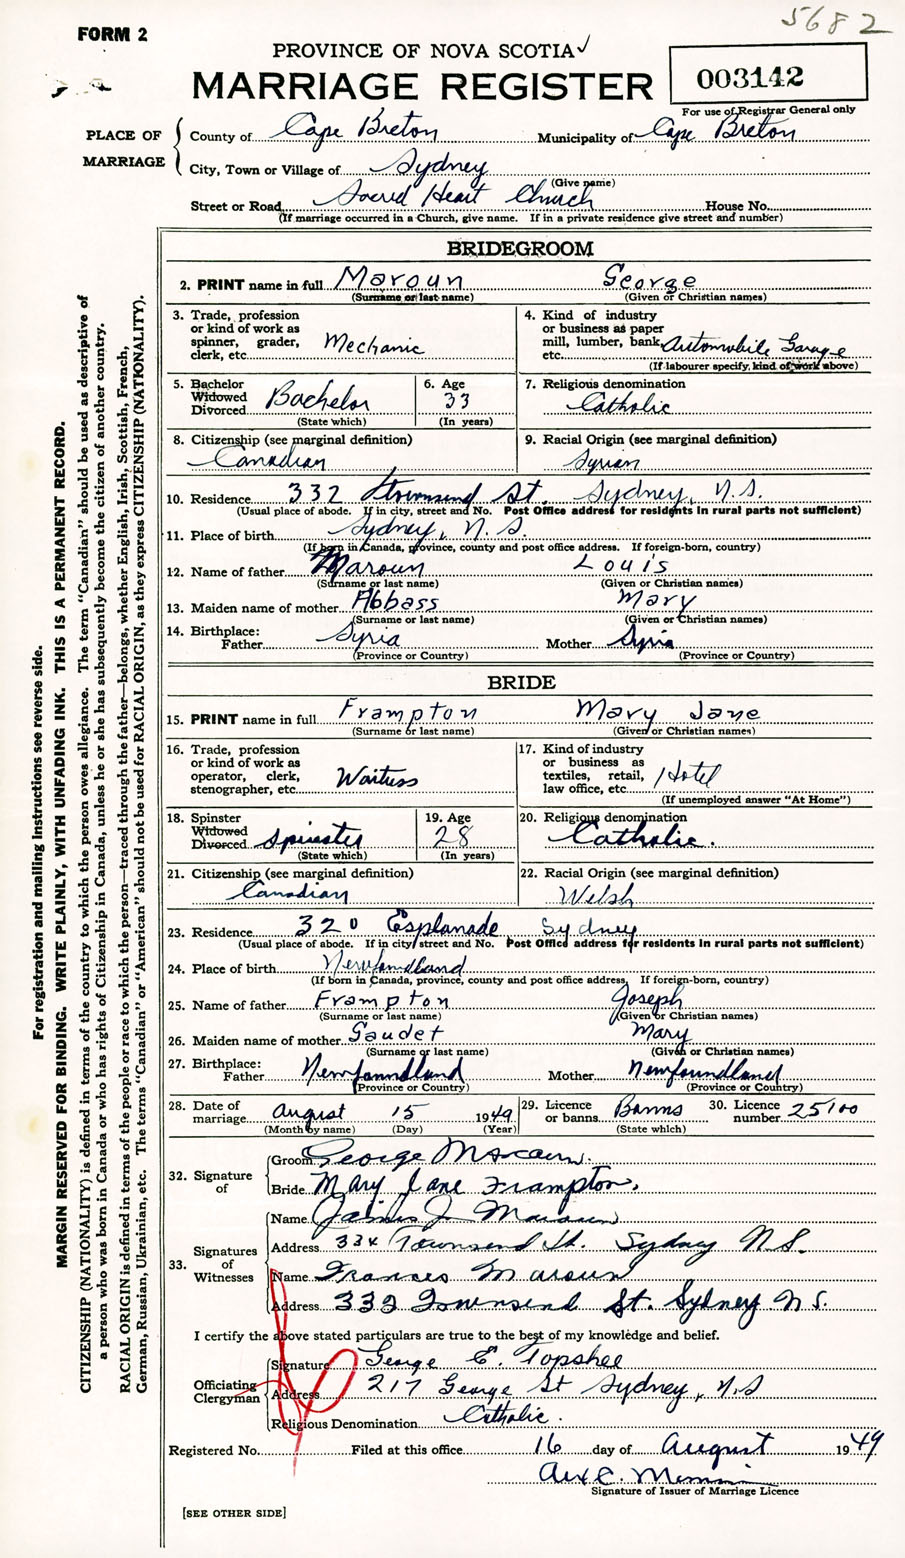 5682
FORM 2
PROVINCE OF NOVA SCOTIA
MARRIAGE REGISTER
003142
For use of Registrar General only
PLACE OF MARRIAGE
County of Cape Breton Municipality of Cape Breton
City, Town or Village of Sydney
(Give name)
Street or Road Sacred Heart Church House No.
(If marriage occurred in a Church, give name. If in a private residence give street and number)
BRIDEGROOM
2. PRINT name in full Maroun George
(Surname or last name) (Given or Christian names)
3. Trade, profession or kind of work as spinner, grader, clerk, etc. Mechanic
4. Kind of industry or business as paper mill, lumber, bank, etc. Automobile Garage
(If labourer specify, kind of work above)
5. Bachelor Widowed Divorced Bachelor
(State which)
6. Age 33
(In years)
7. Religious denomination
Catholic
8. Citizenship (see marginal definition)
Canadian
9. Racial Origin (see marginal definition)
Syrian
10. Residence 332 Townsend St. Sydney, N.S.
(Usual place of abode. If in city, street and No. Post Office address for residents in rural parts not sufficient)
11. Place of birth Sydney, N.S.
(If born in Canada, province, county and post office address. If foreign-born, country)
12. Name of father Maroun Louis
(Surname or last name) (Given or Christian names)
13. Maiden name of mother Abbass Mary
(Surname or last name) (Given or Christian names)
14. Birthplace:
Father Syria Mother Syria
(Province or Country) (Province or Country)
BRIDE
15. PRINT name in full Frampton Mary Jane
(Surname or last name) (Given or Christian names)
16. Trade, profession or kind of work as operator, clerk, stenographer, etc. Waitress
17. Kind of industry or business as textiles, retail, law office, etc. Hotel
(If unemployed answer "At Home")
18. Spinster Widowed Divorced Spinster
(State which)
19. Age 28
(In years)
20. Religious denomination
Catholic.
21. Citizenship (see marginal definition)
Canadian
22. Racial Origin (see marginal definition)
Welsh
23. Residence 320 Esplanade Sydney
(Usual place of abode. If in city street and No. Post Office address for residents in rural parts not sufficient)
24. Place of birth Newfoundland
(If born in Canada, province, county and post office address. If foreign-born, country)
25. Name of father Frampton Joseph
(Surname or last name) (Given or Christian names)
26. Maiden name of mother Gaudet Mary
(Surname or last name) (Given or Christian names)
27. Birthplace:
Father Newfoundland Mother Newfoundland
(Province or Country) (Province or Country)
28. Date of marriage August 15 1949
(Month by name) (Day) (Year)
29. Licence or banns Banns
(State which)
30. Licence number 25100
32. Signature of
Groom George Maroun.
Bride Mary Jane Frampton.
33. Signatures of Witnesses
Name James J Maroun
Address 334 Townsend St. Sydney N.S.
Name Frances Maroun
Address 332 Townsend St. Sydney N.S.
I certify the above stated particulars are true to the best of my knowledge and belief.
Officiating Clergyman
Signature George E. Topshee
Address 217 George St Sydney, N.S
Religious Denomination Catholic.
Registered No. Filed at this office 16 day of August 1949
Signature of Issuer of Marriage Licence
[SEE OTHER SIDE]
For registration and mailing instructions see reverse side.
MARGIN RESERVED FOR BINDING. WRITE PLAINLY, WITH UNFADING INK. THIS IS A PERMANENT RECORD.
CITIZENSHIP (NATIONALITY) is defined in terms of the country to which the person owes allegiance. The term "Canadian" should be used as descriptive of
a person who was born in Canada or who has rights of Citizenship in Canada, unless he or she has subsequently become the citizen of another country.
RACIAL ORIGIN is defined in terms of the people or race to which the person—traced through the father—belongs, whether English, Irish, Scottish, French,
German, Russian, Ukrainian, etc. The terms "Canadian" or "American" should not be used for RACIAL ORIGIN, as they express CITIZENSHIP (NATIONALITY).